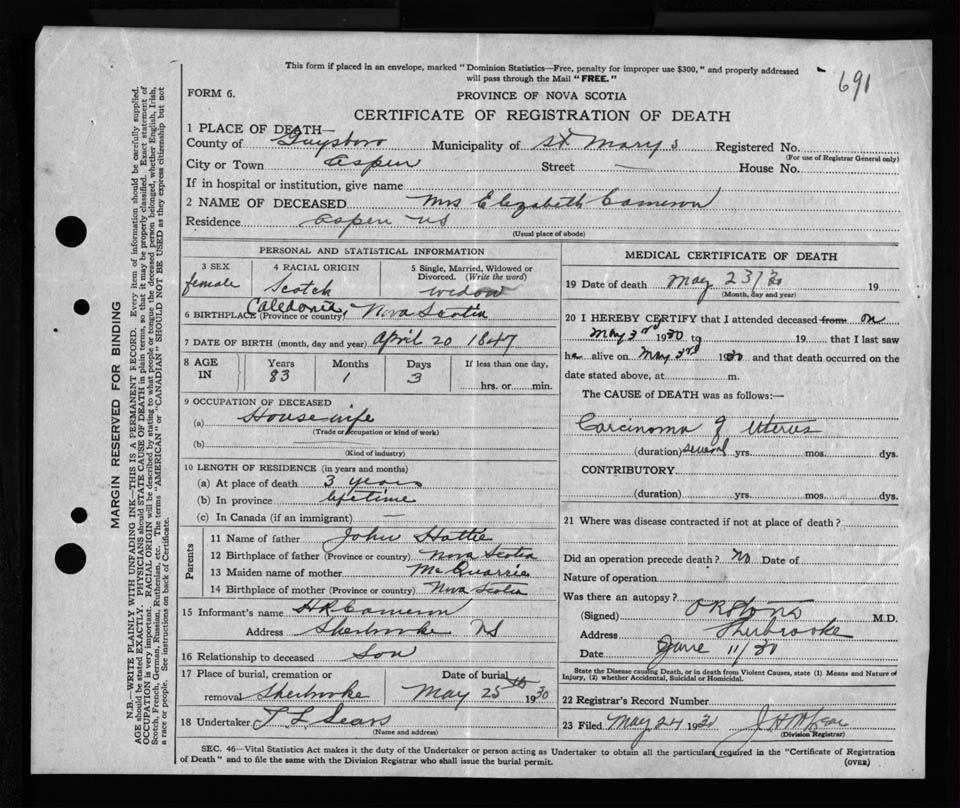 This form if placed in an envelope, marked "Dominion Statistics—Free, penalty for improper use $300," and properly addressed
will pass through the Mail "FREE."
691
FORM 6.
PROVINCE OF NOVA SCOTIA
CERTIFICATE OF REGISTRATION OF DEATH
1 PLACE OF DEATH—
County of Guysboro Municipality of St Mary's Registered No.
(For use of Registrar General only)
City or Town Aspen Street — House No.
If in hospital or institution, give name
2 NAME OF DECEASED Mrs Elizabeth Cameron
Residence Aspen NS
(Usual place of abode)
PERSONAL AND STATISTICAL INFORMATION
3 SEX
female
4 RACIAL ORIGIN
Scotch
5 Single, Married, Widowed or
Divorced. (Write the word)
widow
6 BIRTHPLACE (Province or country) Caledonia, Nova Scotia
7 DATE OF BIRTH (month, day and year) April 20 1847
8 AGE IN
Years Months Days If less than one day,
83 1 3 hrs. or min.
9 OCCUPATION OF DECEASED
(a) Housewife
(Trade or occupation or kind of work)
(b)
(Kind of industry)
10 LENGTH OF RESIDENCE (in years and months)
(a) At place of death 3 years
(b) In province lifetime
(c) In Canada (if an immigrant) —
Parents
11 Name of father John Hattie
12 Birthplace of father (Province or country) Nova Scotia
13 Maiden name of mother McQuarrie
14 Birthplace of mother (Province or country) Nova Scotia
15 Informant's name HR Cameron
Address Sherbrooke NS
16 Relationship to deceased Son
17 Place of burial, cremation or
removal Sherbrooke
Date of burial
May 25th 1930
18 Undertaker T L Sears
(Name and address)
MEDICAL CERTIFICATE OF DEATH
19 Date of death May 23/30 19
(Month, day and year)
20 I HEREBY CERTIFY that I attended deceased from on
May 3rd 1930 to 19 that I last saw
her alive on May 3rd 1930 and that death occurred on the
date stated above, at m.
The CAUSE of DEATH was as follows:—
Carcinoma of Uterus
(duration) several yrs. mos. dys.
CONTRIBUTORY.
(duration) yrs. mos. dys.
21 Where was disease contracted if not at place of death?
Did an operation precede death? No Date of
Nature of operation
Was there an autopsy?
(Signed) M.D.
Address Sherbrooke
Date June 11/30
State the Disease causing Death, or in death from Violent Causes, state (1) Means and Nature of
Injury, (2) whether Accidental, Suicidal or Homicidal.
22 Registrar's Record Number
23 Filed May 24 1930
(Division Registrar)
SEC. 46—Vital Statistics Act makes it the duty of the Undertaker or person acting as Undertaker to obtain all the particulars required in the "Certificate of Registration
of Death" and to file the same with the Division Registrar who shall issue the burial permit.
(OVER)
MARGIN RESERVED FOR BINDING
N.B.—WRITE PLAINLY WITH UNFADING INK—THIS IS A PERMANENT RECORD. Every item of information should be carefully supplied.
AGE should be stated EXACTLY. PHYSICIANS should STATE CAUSE OF DEATH in plain terms, so that it may be properly classified. Exact statement of
OCCUPATION is very important. RACIAL ORIGIN will be described by stating to what people or tongue the deceased person belonged, whether English, Irish,
Scotch, French, German, Russian, Ruthenian, etc. The terms "AMERICAN" or "CANADIAN" SHOULD NOT BE USED as they express citizenship but not
a race or people. See instructions on back of Certificate.